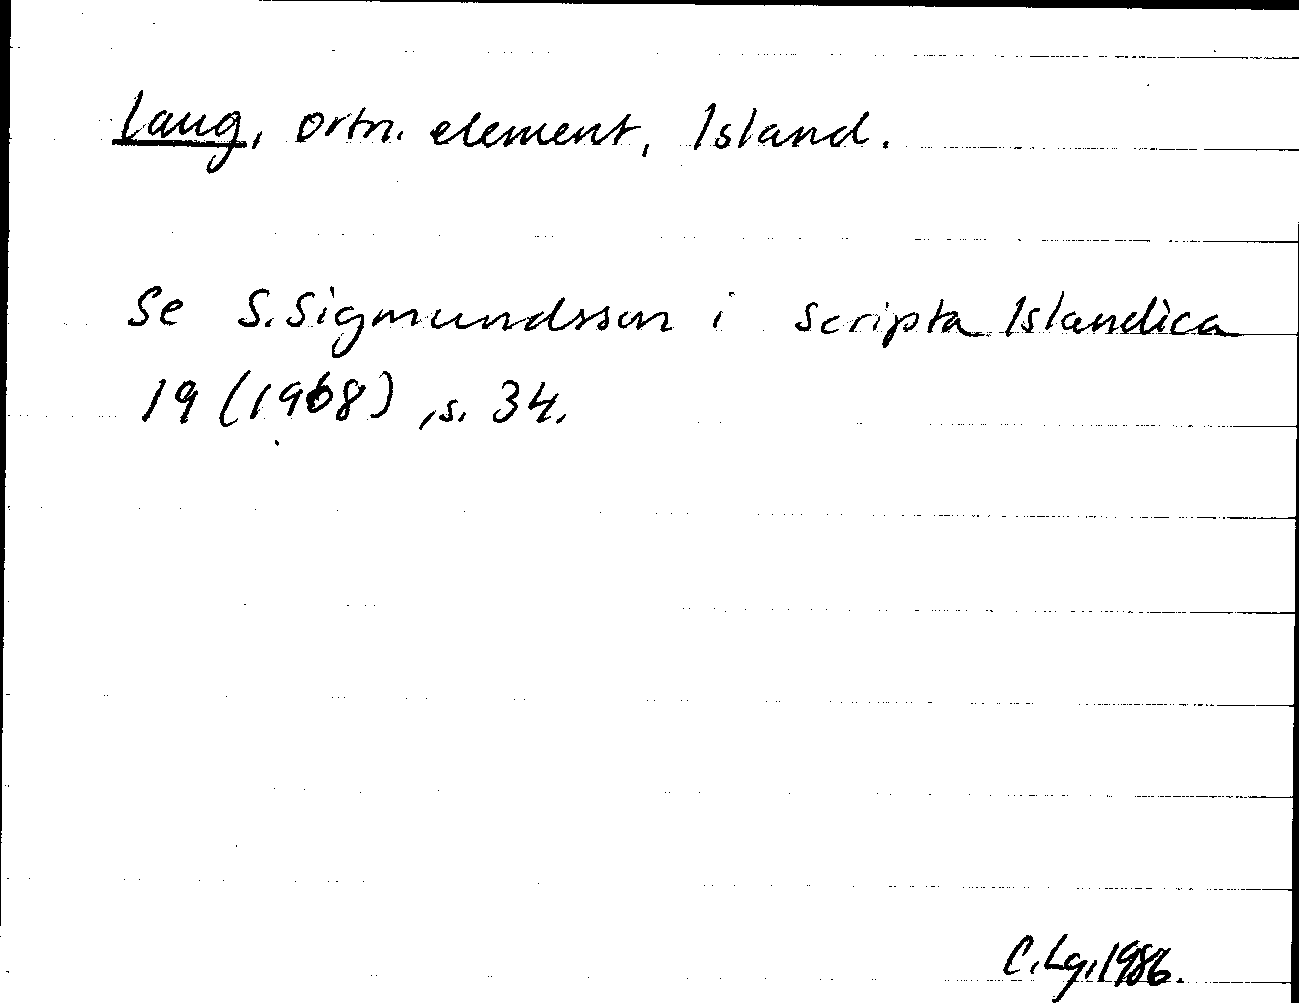 Laug, ortn. element, Island.
Se S. Sigmundsson i Scripta Islandica
19 (1968), s. 34.
C. Lg. 1986.